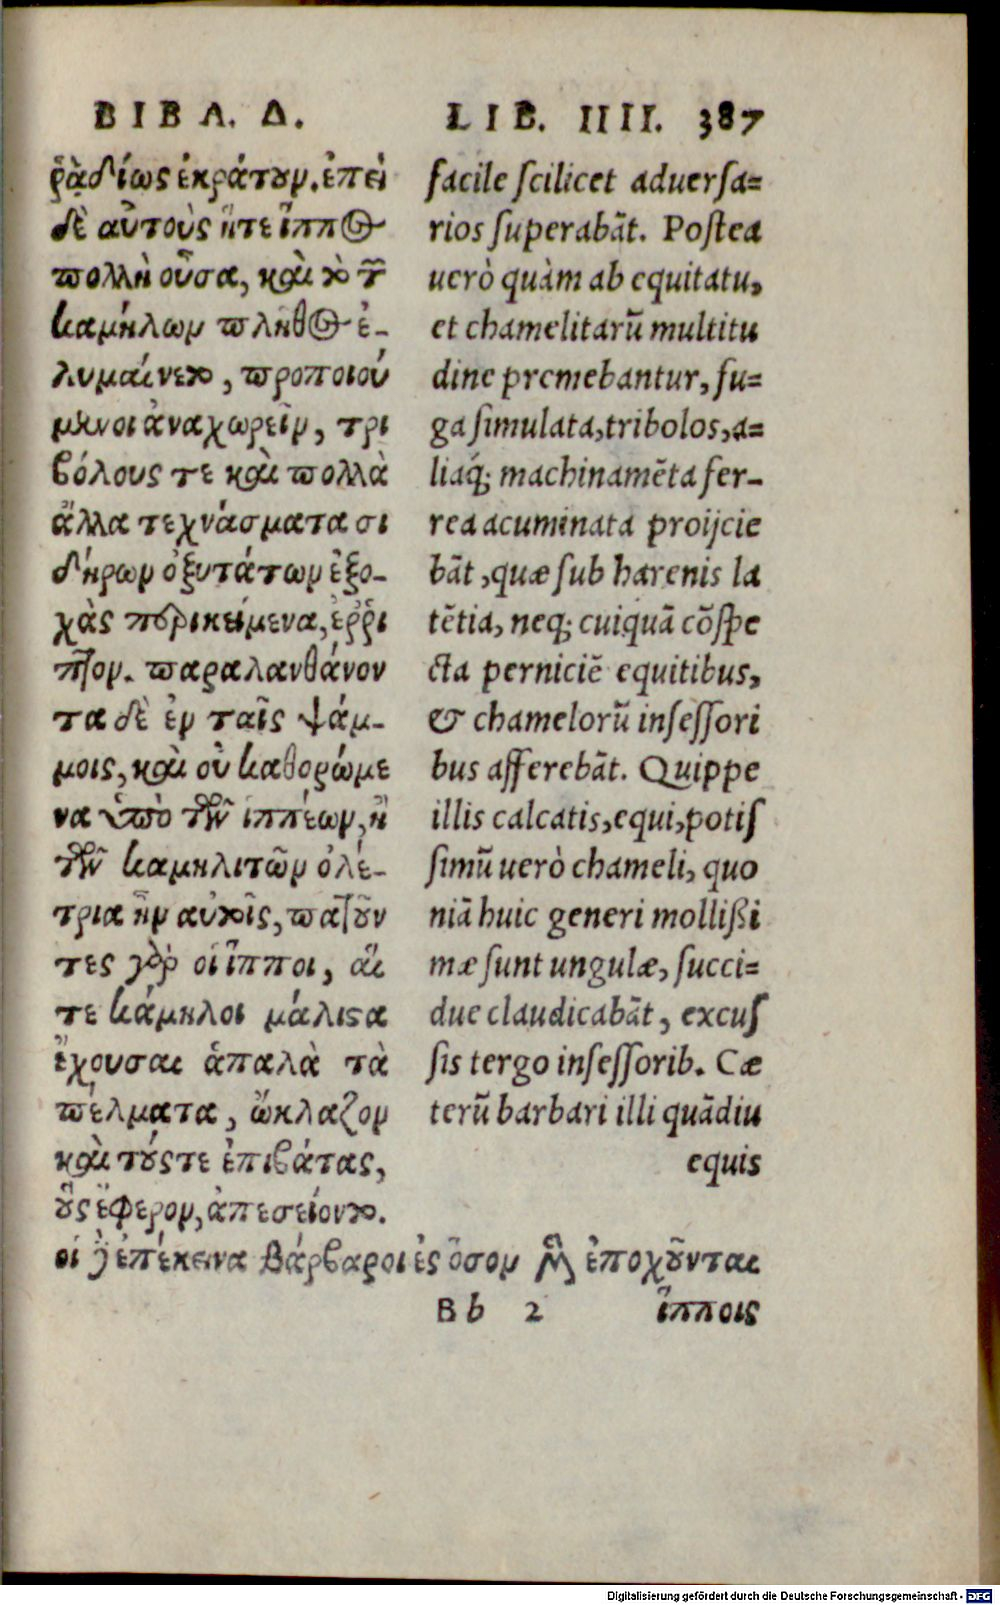 ΒΙΒΛ. Δ.
ῥᾳδίως ἐκράτουν. ἐπεὶ
δὲ αὐτοὺς ἥτε ἵππος
πολλὴ οὖσα, καὶ τὸ τῶν
καμήλων πλῆθος ἐ-
λυμαίνετο, προποιού
μενοι ἀναχωρεῖν, τρι
βόλους τε καὶ πολλὰ
ἄλλα τεχνάσματα σι
δήρων ὀξυτάτων ἐξο-
χὰς περικείμενα, ἐῤῥι
πτον. παραλανθάνον
τα δὲ ἐν ταῖς ψάμ-
μοις, καὶ οὐ καθορώμε
να ὑπὸ τῶν ἱππέων, ἢ
τῶν καμηλιτῶν ὀλέ-
τρια ἦν αὐτοῖς, πατοῦν
τες γὰρ οἱ ἵπποι, αἵ
τε κάμηλοι μάλιστα
ἔχουσαι ἁπαλὰ τὰ
πέλματα, ὤκλαζον
καὶ τούς τε ἐπιβάτας,
οὓς ἔφερον, ἀπεσείοντο.
οἱ γὰρ ἐπέκεινα βάρβαροι ἐς ὅσον μὲν ἐποχοῦνται
LIB. IIII. 387
facile scilicet aduersa=
rios superabãt. Postea
uerò quàm ab equitatu,
et chamelitarũ multitu
dine premebantur, fu=
ga simulata, tribolos, a=
liaq́; machinamẽta fer-
rea acuminata proijcie
bãt, quæ sub harenis la
tẽtia, neq; cuiquã cõspe
cta perniciẽ equitibus,
& chamelorũ insessori
bus afferebãt. Quippe
illis calcatis, equi, potis
simũ uerò chameli, quo
niã huic generi mollißi
mæ sunt ungulæ, succi=
due claudicabãt, excus
sis tergo insessorib. Cæ
terũ barbari illi quãdiu
equis
Bb 2 ἵπποις
Digitalisierung gefördert durch die Deutsche Forschungsgemeinschaft - DFG